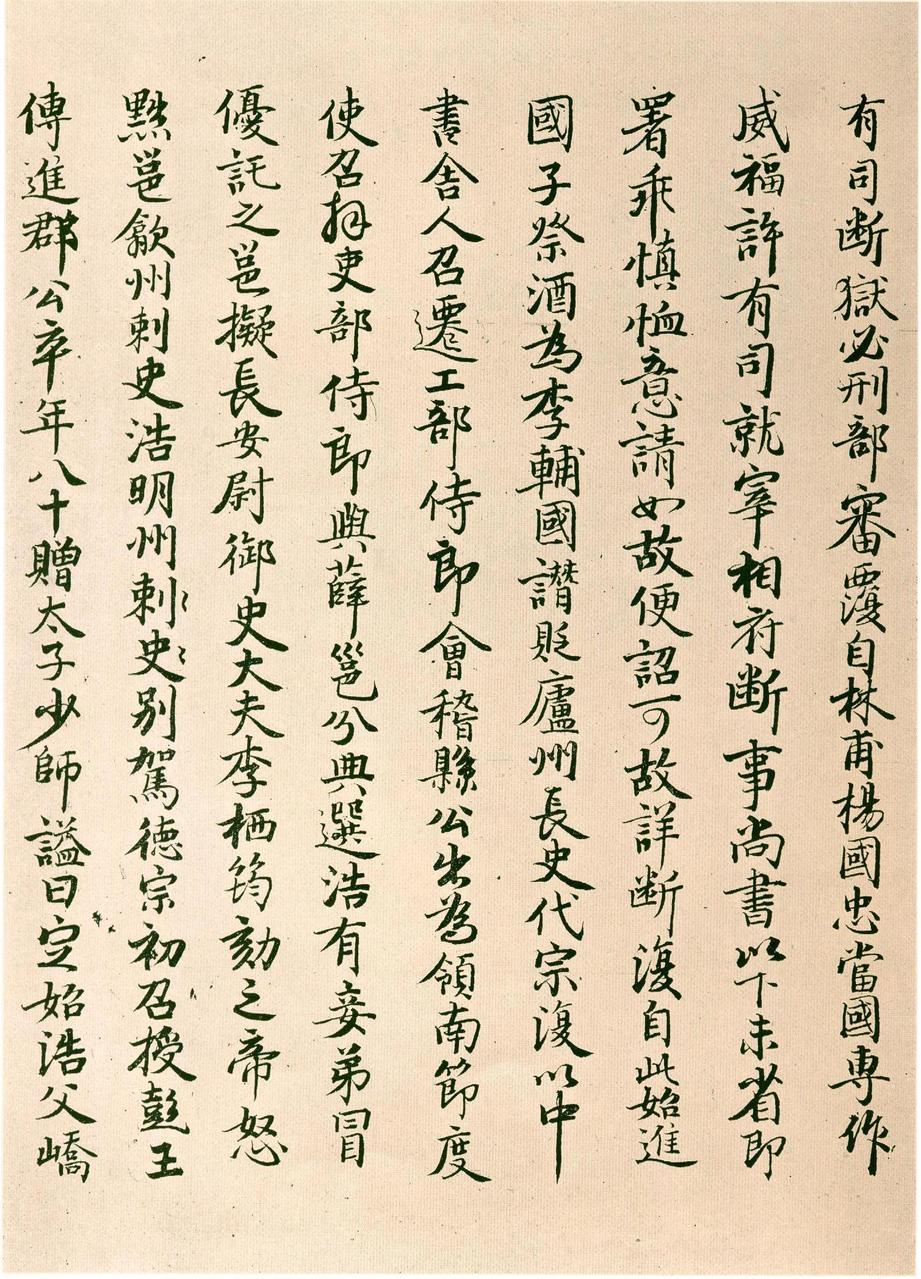 有司断獄必刑部審覆自林甫楊國忠當國専作
威福許有司就宰相府断事尚書以下未省即
署乖慎恤意請如故便詔可故詳断復自此始進
國子祭酒為李輔國譖貶廬州長史代宗復以中
書舎人召遷工部侍郎會稽縣公出為領南節度
使召拜吏部侍郎與薛邕分典選浩有妾弟冒
優託之邕擬長安尉御史大夫李栖筠劾之帝怒
黜邕歙州刺史浩明州刺〻史〻別駕德宗初召授彭王
傅進郡公卒年八十贈太子少師謚曰定始浩父嶠